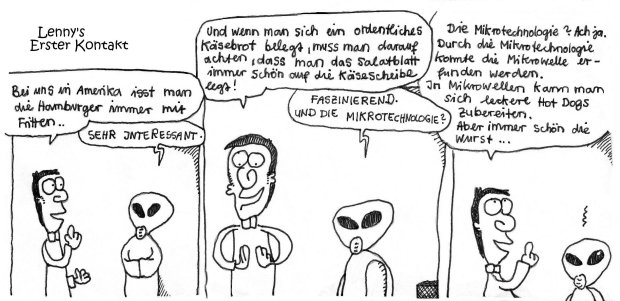 Lenny's
Erster Kontakt
Bei uns in Amerika isst man
die Hamburger immer mit
Fritten..
SEHR INTERESSANT.
Und wenn man sich ein ordentliches
Käsebrot belegt, muss man darauf
achten, dass man das Salatblatt
immer schön auf die Käsescheibe
legt!
FASZINIEREND.
UND DIE MIKROTECHNOLOGIE?
Die Mikrotechnologie? Ach ja.
Durch die Mikrotechnologie
konnte die Mikrowelle er-
funden werden.
In Mikrowellen kann man
sich leckere Hot Dogs
zubereiten.
Aber immer schön die
Wurst ...